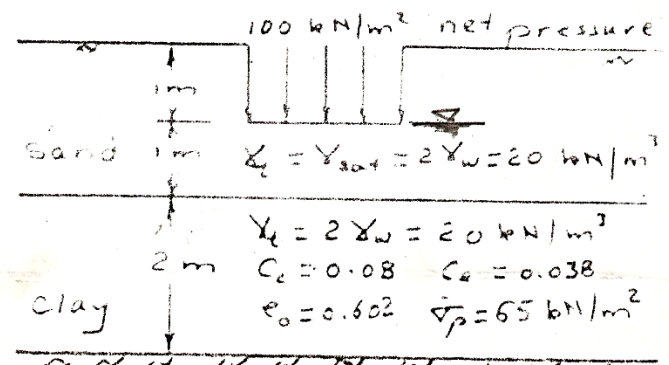 100 kN/m² net pressure
1m
sand 1m γt = γsat = 2γw = 20 kN/m³
γt = 2γw = 20 kN/m³
2m Cc = 0.08 Ce = 0.038
clay e₀ = 0.602 σ̄p = 65 kN/m²